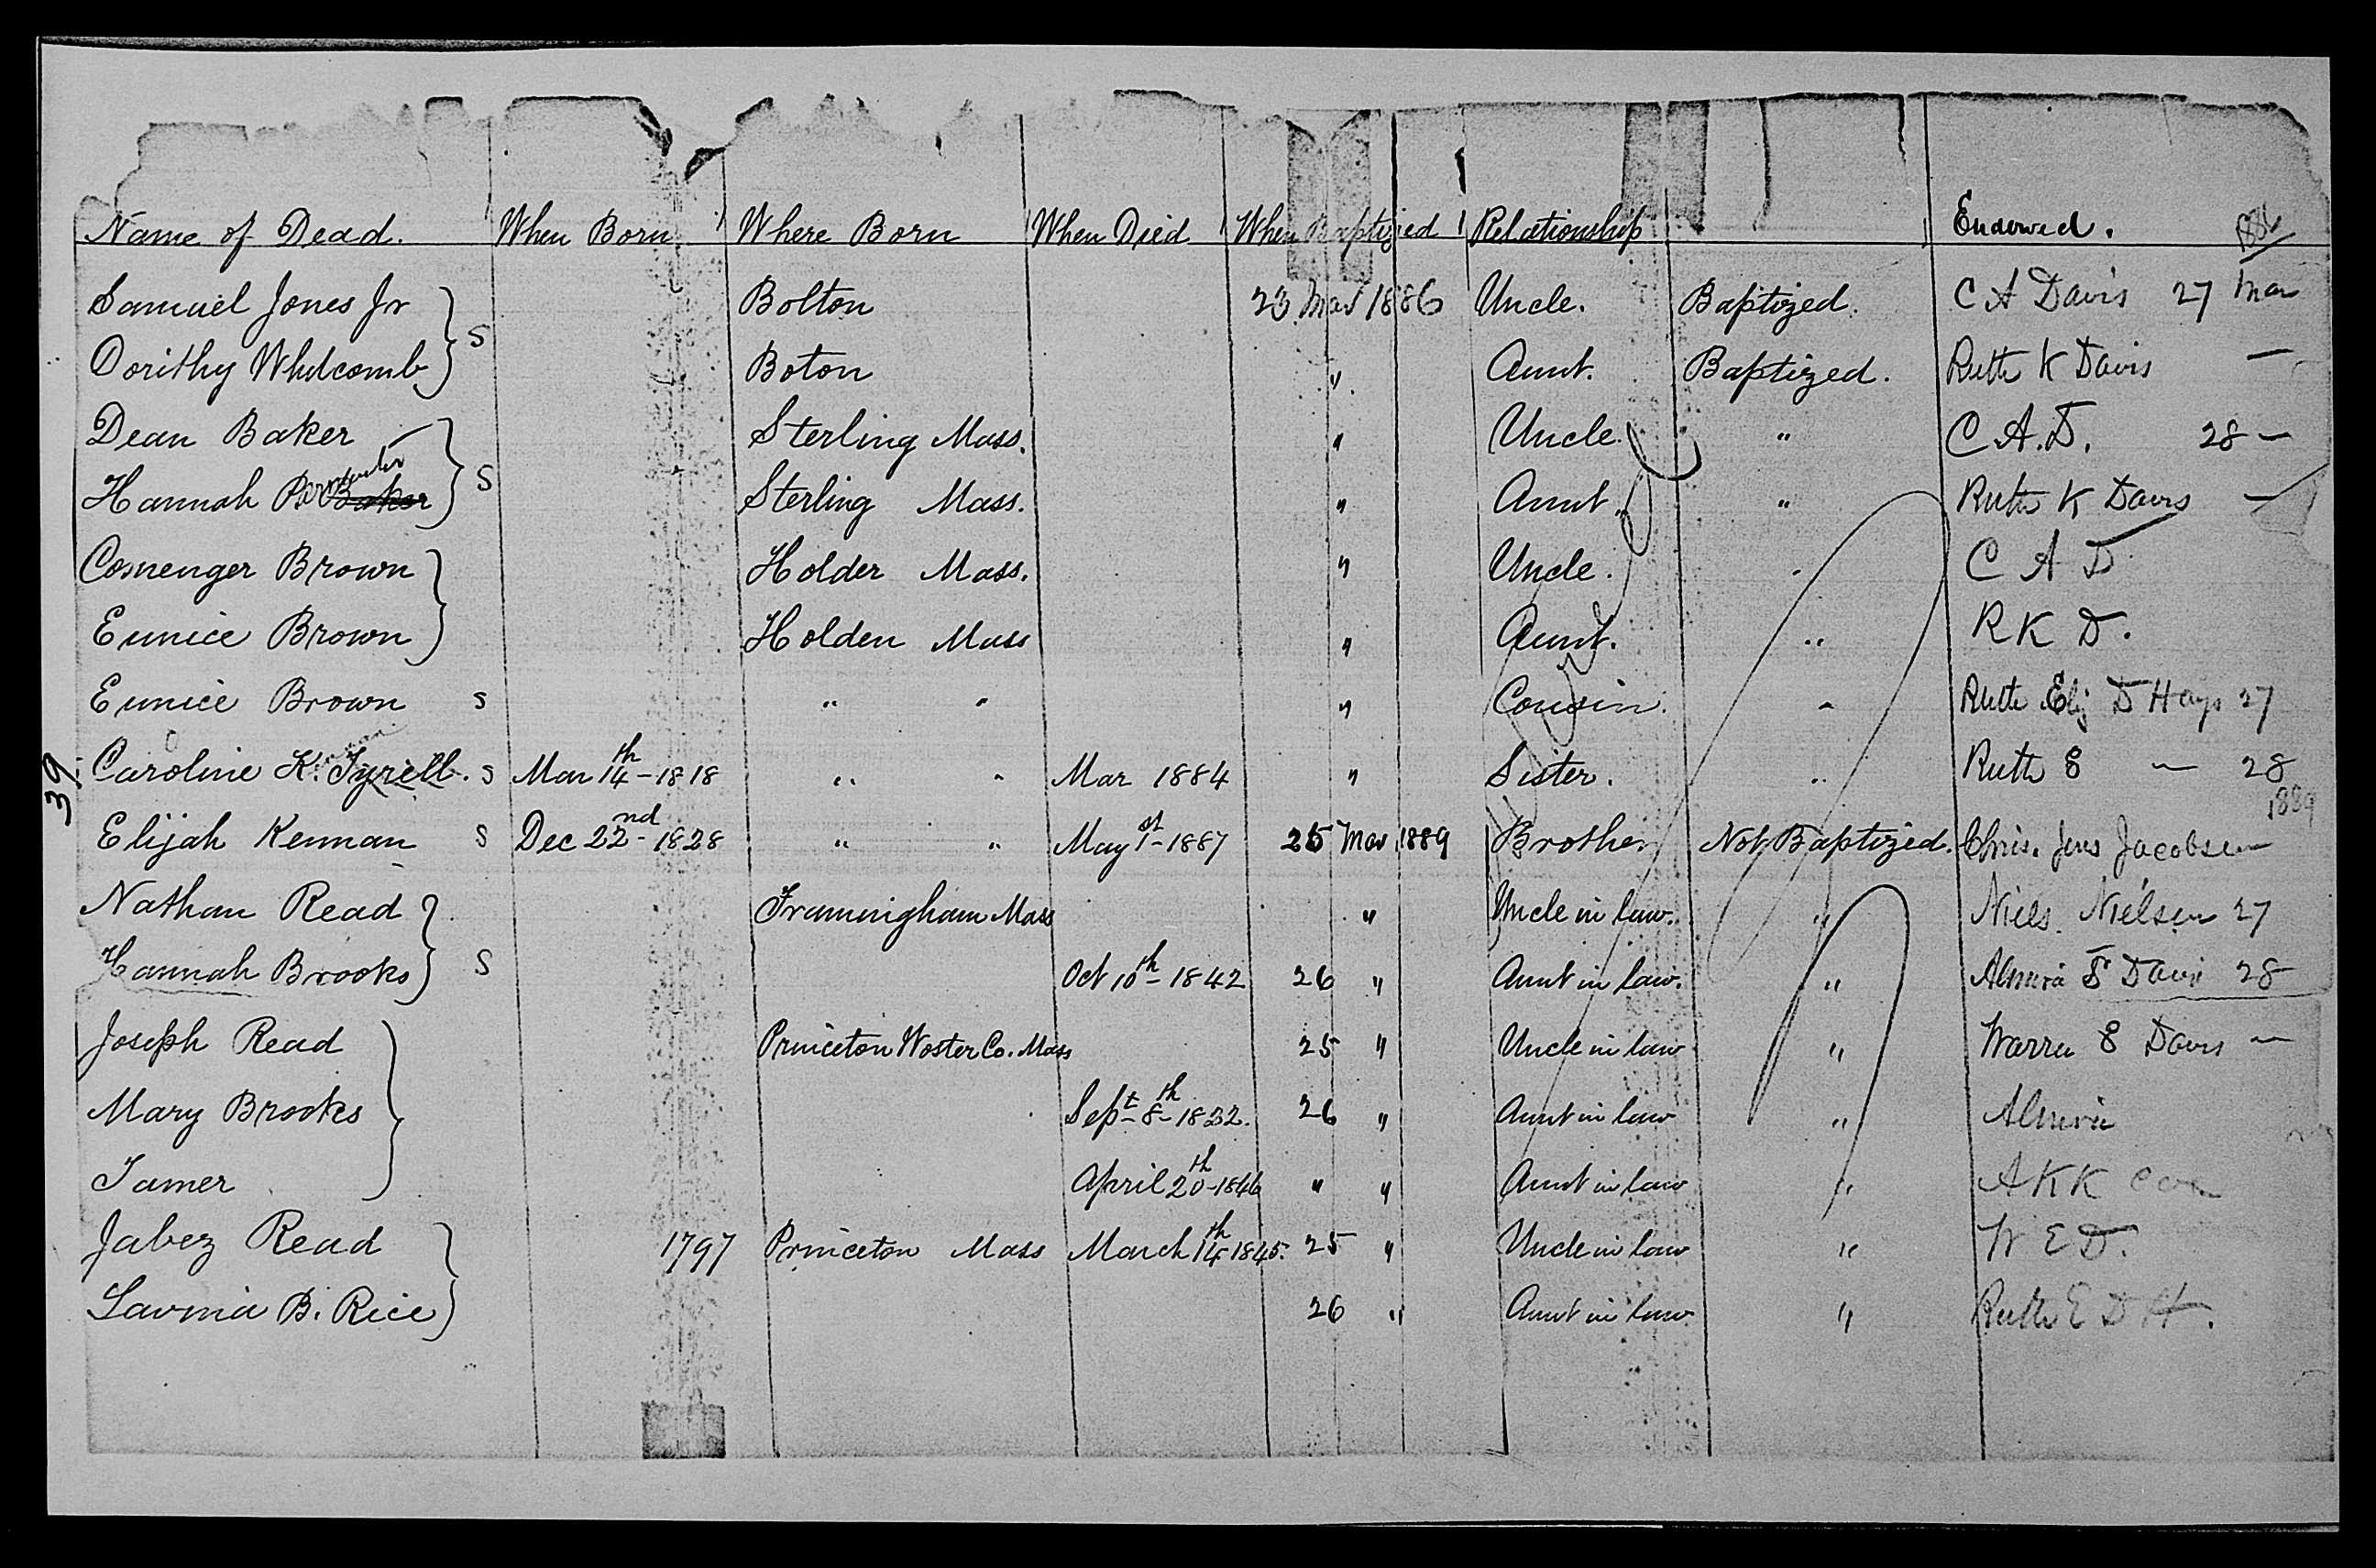 Name of Dead. When Born Where Born When Died When Baptized Relationship Endowed. 1886
Samuel Jones Jr Bolton 23 Mar 1886 Uncle. Baptized. C A Davis 27 Mar
S
Dorithy Whitcomb Boton " Aunt. Baptized. Ruth K Davis —
Dean Baker Sterling Mass. " Uncle. " C. A. D. 28 —
Hannah Baker Sterling Mass. " Aunt. " Ruth K Davis —
S
Cosnenger Brown Holder Mass. " Uncle. " C A D
Eunice Brown Holden Mass " Aunt. " R K D.
Eunice Brown S " " " Cousin. " Ruth Eliz D Hays 27
Caroline K. Tyrell. S Mar 14th - 1818 " " Mar 1884 " Sister. " Ruth E — 28
39
1889
Elijah Kenman S Dec 22nd - 1828 " " May 1st - 1887 25 Mar 1889 Brother Not Baptized. Chris. Jens Jacobsen
Nathan Read Framingham Mass " Uncle in law. " Niels Nielsen 27
Hannah Brooks S Oct 10th - 1842 26 " Aunt in law. " Almira E Davis 28
Joseph Read Princeton Woster Co. Mass 25 " Uncle in law " Warren E Davis —
Mary Brooks Sept - 8th - 1832. 26 " Aunt in law " Almira
Tamer April 20th - 1846 " " Aunt in law " A K K
Jabez Read 1797 Princeton Mass March 14th 1845. 25 " Uncle in law " W E D.
Lavinia B. Rice 26 " Aunt in law " Ruth E D H.